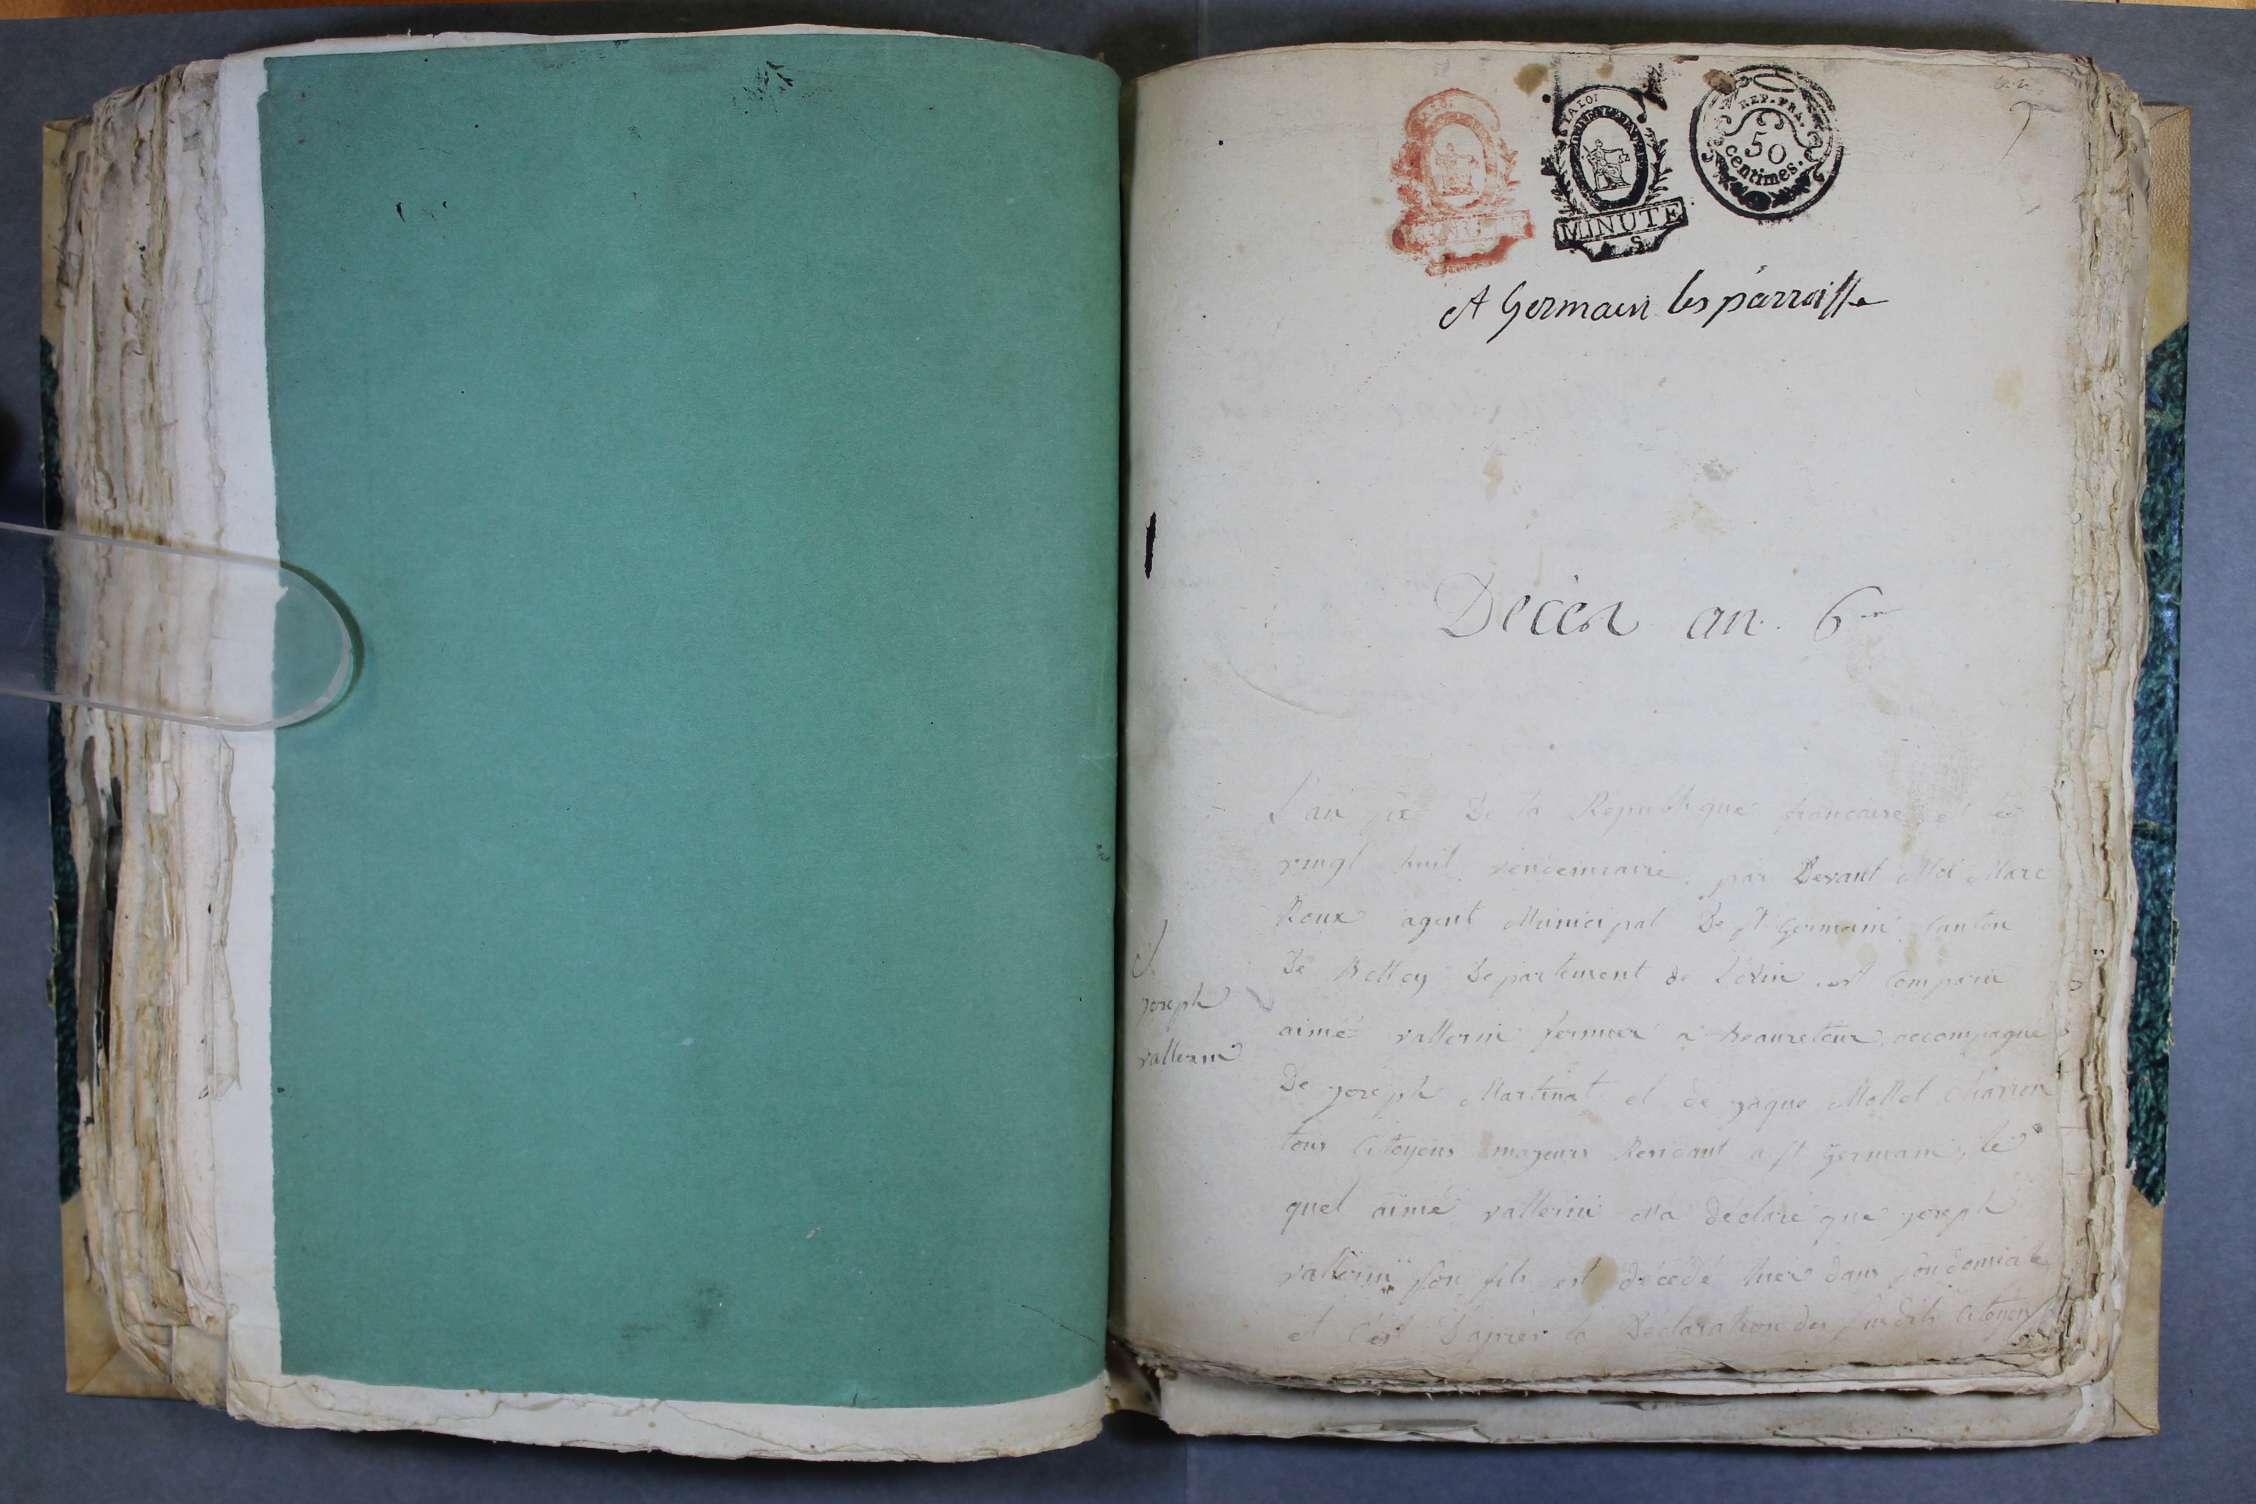 LA LOI
MINUTE
S.
REP. FRA.
50
centimes.
St Germain les parroisse
Décès an 6
L'an six De la Republique francaise et le
vingt huit vendemiaire par Devant Moi Marc
Roux agent Municipal De St Germain canton
De Belley Departement de L'ain est comparu
aimé vallerin fermier a Beauretour accompagné
De joseph Martinat et de jaque Mollet charien
tous Citoyens majeurs Residant a st Germain, le
quel aimé vallerin m'a déclaré que joseph
vallerin son fils est décédé hier dans son domicile
et c'est D'après la Declaration des susdits Citoyens
joseph
vallerin